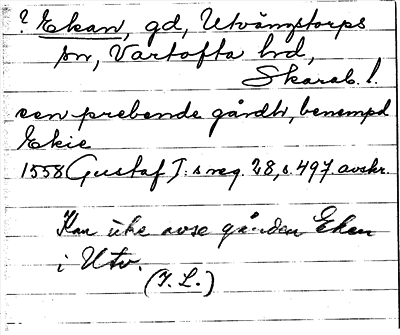 ? Ekan, gd, Utvängstorps
sn, Vartofta hd,
Skarab. l.
een prebende gårdh, benempd
Ekie
1558 Gustaf I:s reg. 28, s. 497. avskr.
Kan icke avse gården Eken
i Utv.
(I. L.)